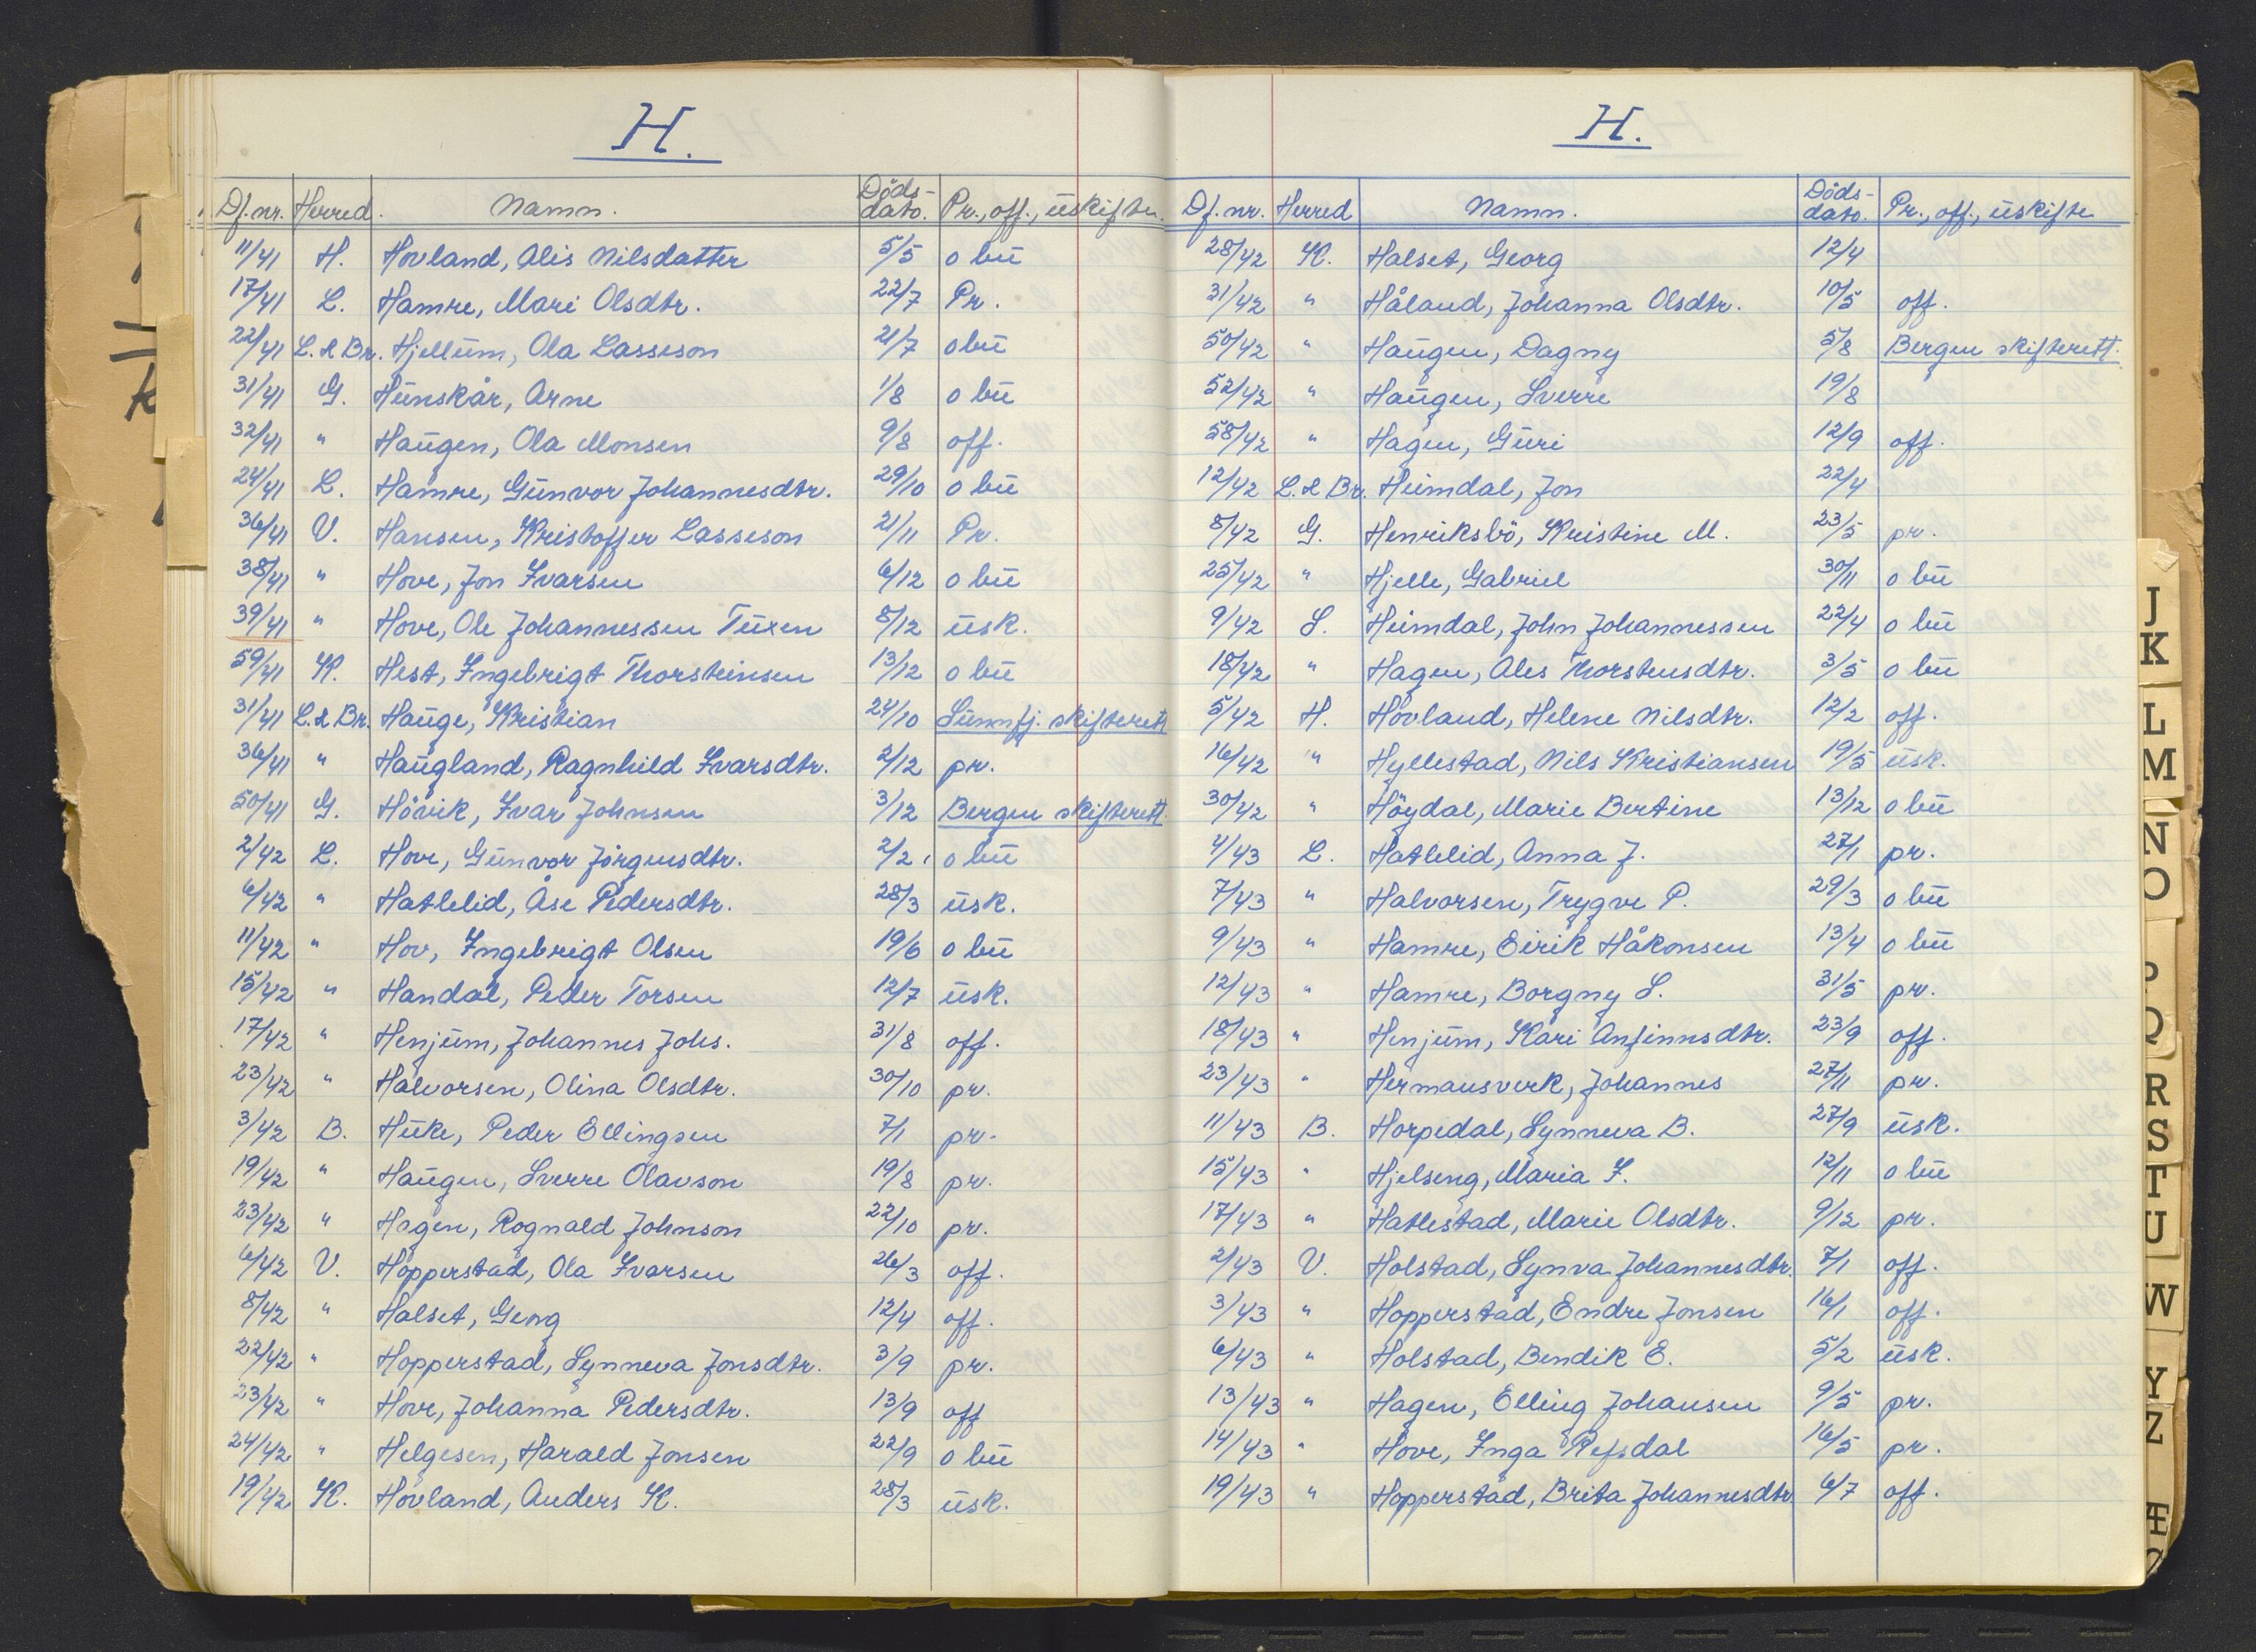 H.
Df.nr. Herred. Namn. Döds-dato. Pr., off., uskifte.
11/41 H. Hovland, Alis Nilsdatter 5/5 o bu
17/41 L. Hamre, Mari Olsdtr. 22/7 Pr.
22/41 L. & Br. Hjellum, Ola Lasseson 21/7 o bu
31/41 G. Hunskår, Arne 1/8 o bu
32/41 " Haugen, Ola Monsen 9/8 off.
24/41 L. Hamre, Gunvor Johannesdtr. 29/10 o bu
36/41 V. Hansen, Kristoffer Lasseson 21/11 Pr.
38/41 " Hove, Jon Ivarsen 6/12 o bu
39/41 " Hove, Ole Johannessen Tuxen 8/12 usk.
59/41 K. Hest, Ingebrigt Thorsteinsen 13/12 o bu
31/41 L. & Br. Hauge, Kristian 24/10 Sunnfj. skifterett
36/41 " Haugland, Ragnhild Ivarsdtr. 2/12 pr.
50/41 G. Hövik, Ivar Johnsen 3/12 Bergen skifterett.
2/42 L. Hove, Gunvor Jörgensdtr. 2/2 o bu
6/42 " Hatlelid, Åse Pedersdtr. 28/3 usk.
11/42 " Hov, Ingebrigt Olsen 19/6 o bu
15/42 " Handal, Peder Torsen 12/7 usk.
17/42 " Henjum, Johannes Johs. 31/8 off.
23/42 " Halvorsen, Olina Olsdtr. 30/10 pr.
3/42 B. Huke, Peder Ellingsen 7/1 pr.
19/42 " Haugen, Sverre Olavson 19/8 pr.
23/42 " Hagen, Rognald Johnson 22/10 pr.
6/42 V. Hopperstad, Ola Ivarsen 26/3 off.
8/42 " Halset, Georg 12/4 off.
22/42 " Hopperstad, Synneva Jonsdtr. 3/9 pr.
23/42 " Hove, Johanna Pedersdtr. 13/9 off
24/42 " Helgesen, Harald Jonsen 22/9 o bu
19/42 K. Hovland, Anders K. 28/3 usk.
H.
Df.nr. Herred Namn. Döds-dato. Pr., off., uskifte
28/42 K. Halset, Georg 12/4
31/42 " Håland, Johanna Olsdtr. 10/5 off.
50/42 " Haugen, Dagny 5/8 Bergen skifterett.
52/42 " Haugen, Sverre 19/8
58/42 " Hagen, Guri 12/9 off.
12/42 L. & Br. Heimdal, Jon 22/4
8/42 G. Henriksbö, Kristine M. 23/5 pr.
25/42 " Hjelle, Gabriel 30/11 o bu
9/42 S. Heimdal, John Johannessen 22/4 o bu
18/42 " Hagen, Ales Thorstensdtr. 3/5 o bu
5/42 H. Hovland, Helene Nilsdtr. 12/2 off.
16/42 " Hyllestad, Nils Kristiansen 19/5 usk.
30/42 " Höydal, Marie Bertine 13/12 o bu
4/43 L. Hatlelid, Anna J. 27/1 pr.
7/43 " Halvorsen, Trygve P. 29/3 o bu
9/43 " Hamre, Eirik Håkonsen 13/4 o bu
12/43 " Hamre, Borgny S. 31/5 pr.
18/43 " Henjum, Kari Anfinnsdtr. 23/9 off.
23/43 " Hermansverk, Johannes 27/11 pr.
11/43 B. Horpedal, Synneva B. 27/9 usk.
15/43 " Hjelseng, Maria I. 12/11 o bu
17/43 " Hatlestad, Marie Olsdtr. 9/12 pr.
2/43 V. Holstad, Synva Johannesdtr. 7/1 off.
3/43 " Hopperstad, Endre Jonsen 16/1 off.
6/43 " Holstad, Bendik E. 5/2 usk.
13/43 " Hagen, Elling Johansen 9/5 pr.
14/43 " Hove, Inga Refsdal 16/5 pr.
19/43 " Hopperstad, Brita Johannesdtr 6/7 off.
J
K
L
M
N
O
P
Q
R
S
T
U
W
Y
Z
Æ
Ø